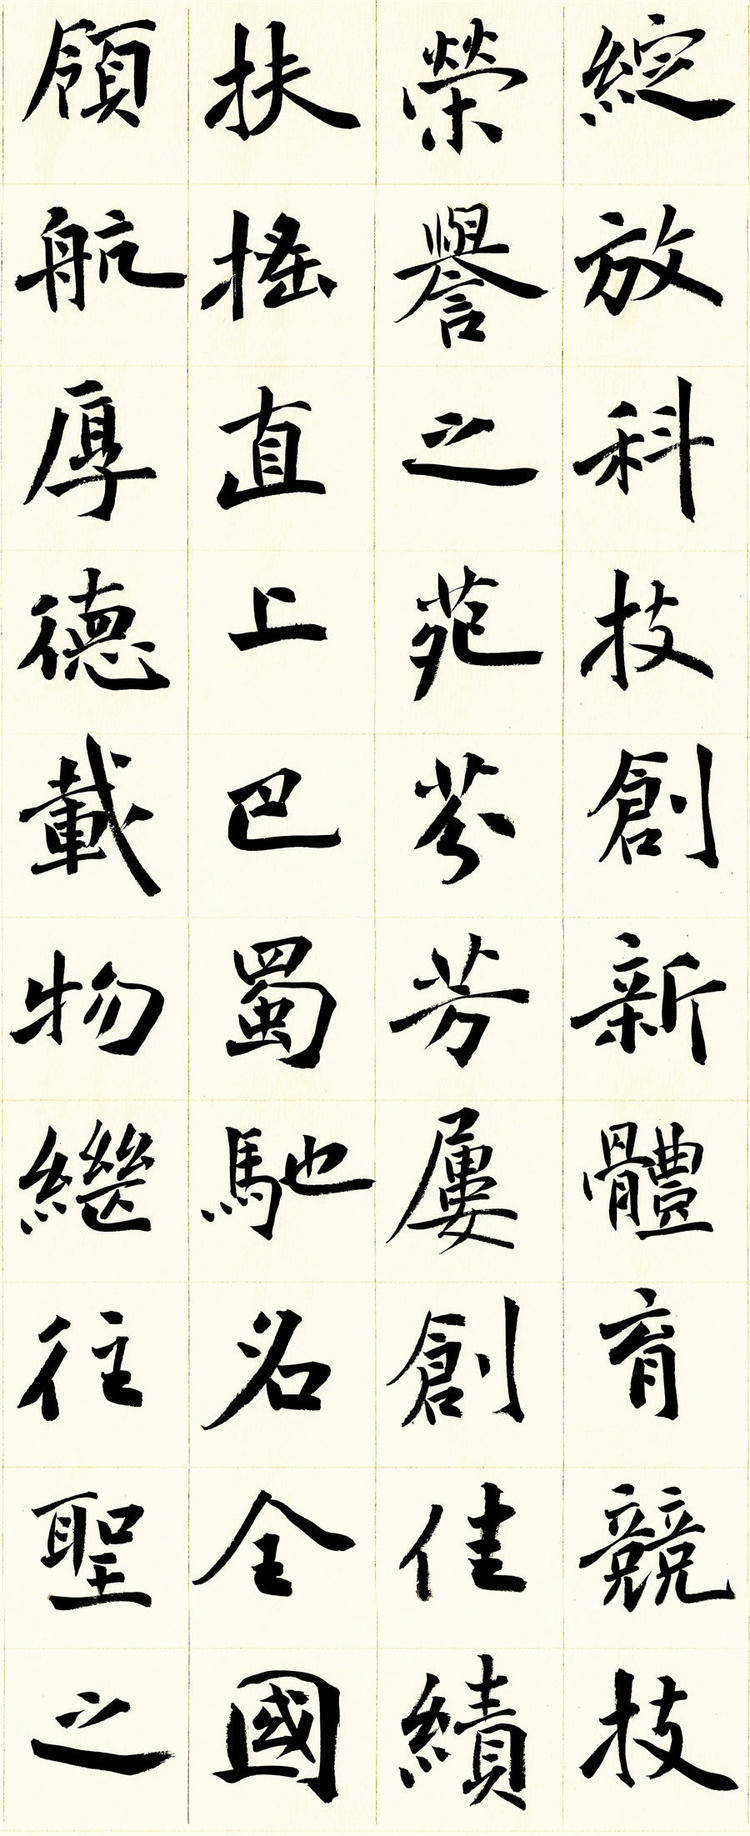 綻放科技創新體育競技
榮譽之苑芬芳屢創佳績
扶搖直上巴蜀馳名全國
領航厚德載物繼往聖之